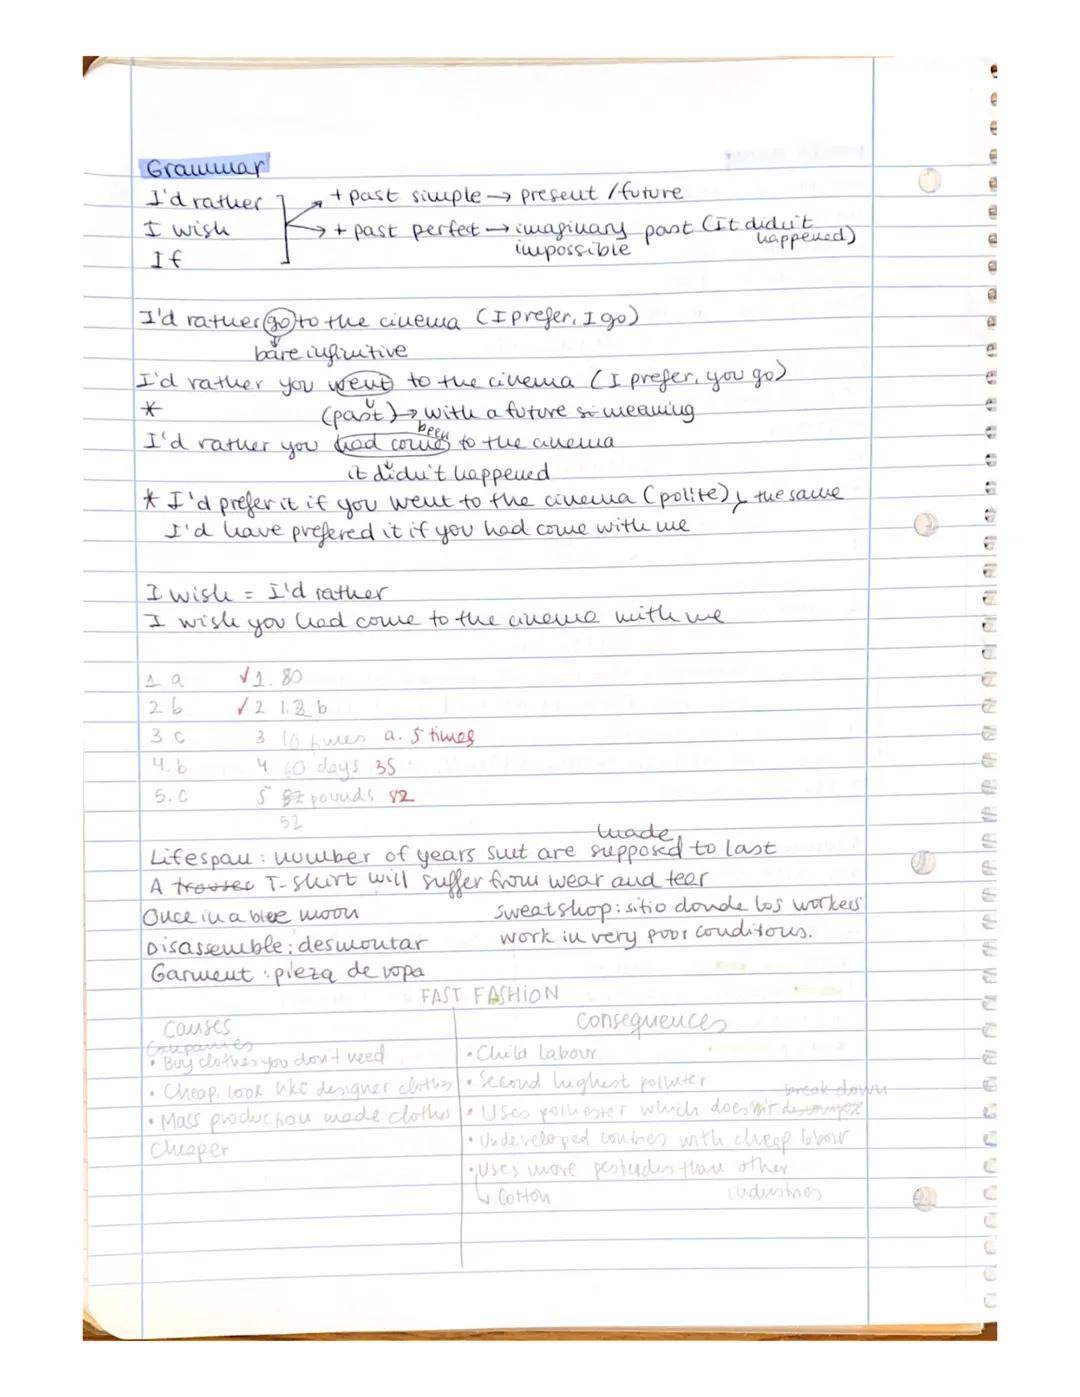 Grammar
I'd rather + past simple → present / future
I wish + past perfect → imaginary past (It didn't happened)
If impossible
I'd rather go to the cinema (I prefer, I go)
bare infinitive
I'd rather you went to the cinema (I prefer, you go)
* (past) → with a future meaning
been
I'd rather you had come to the cinema
it didn't happened
* I'd prefer it if you went to the cinema (polite) the same
I'd have prefered it if you had come with me
I wish = I'd rather
I wish you had come to the cinema with me
1 a ✓1. 80
2 b ✓2 b
3 c 3 10 times a. 5 times
4. b 4 60 days 35
5. c 5 pounds 82
52
made
Lifespan: number of years suit are supposed to last
A trouser T-shirt will suffer from wear and tear
Once in a blee moon sweatshop: sitio donde los workers
Disassemble: desmontar work in very poor conditons.
Garment: pieza de ropa
FAST FASHION
Causes Consequences
Companies
• Buy clothes you don't need • Child labour
• Cheap, look like designer clothes • Second highest polluter
break down
• Mass production made clothes • Uses poliester which doesn't
Cheaper • Undeveloped contries with cheap labour
• Uses more pesticides than other
↳ Cotton industries